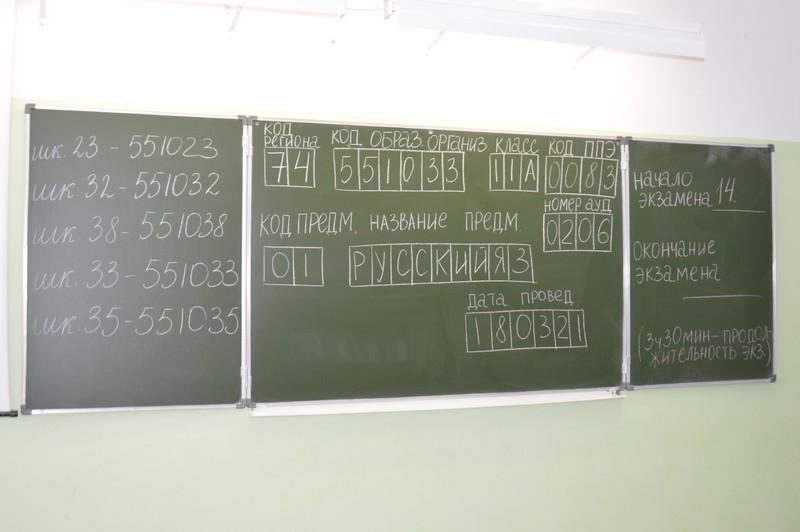 шк. 23 - 551023
шк. 32 - 551032
шк. 38 - 551038
шк. 33 - 551033
шк. 35 - 551035
КОД РЕГИОНА
74
КОД ОБРАЗ. ОРГАНИЗ
551033
КЛАСС
11А
КОД ППЭ
0083
НОМЕР АУД
0206
КОД ПРЕДМ. НАЗВАНИЕ ПРЕДМ.
01 РУССКИЙЯЗ
ДАТА ПРОВЕД
180321
НАЧАЛО
ЭКЗАМЕНА 14.
ОКОНЧАНИЕ
ЭКЗАМЕНА
(3ч30МИН- ПРОДОЛ-
ЖИТЕЛЬНОСТЬ ЭКЗ.)